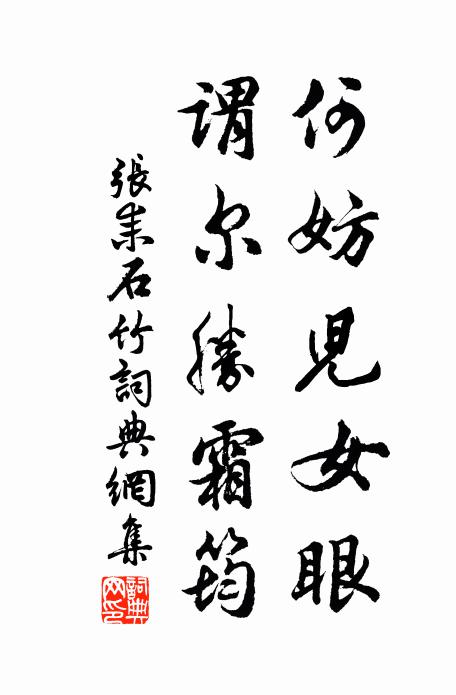 何妨兒女眼
謂尔勝霜筠
張耒石竹詞典網集
詞典网印